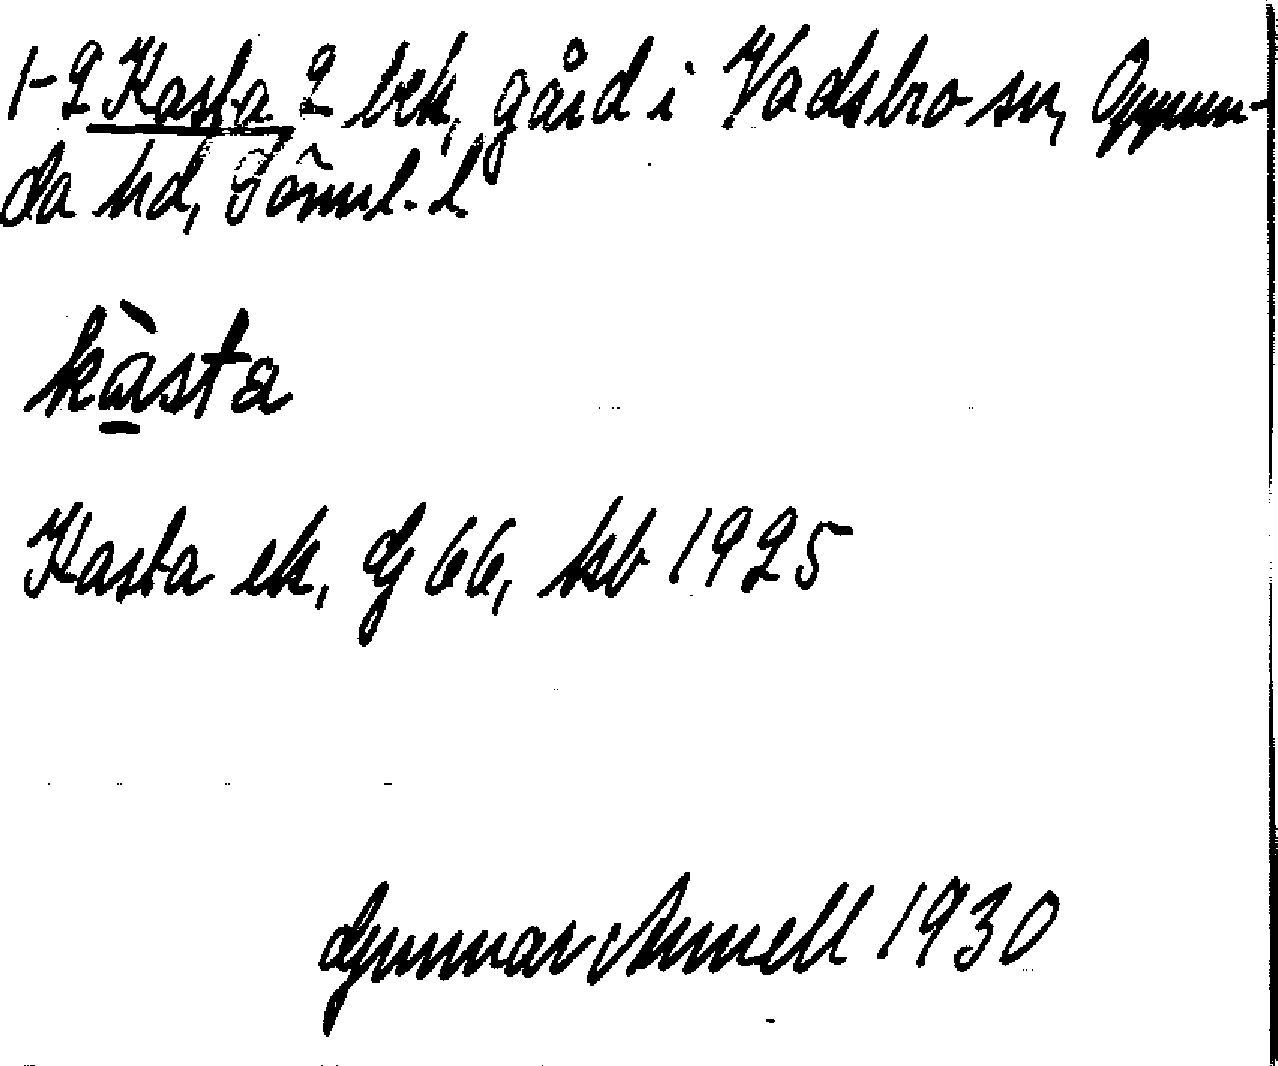 1-2 Kasta 2 bek, gård i Vadsbro sn, Oppun-
da hd, Söml. l.
kàsta
Kasta ek, dj 66, kb 1925
Gunnar Arnell 1930